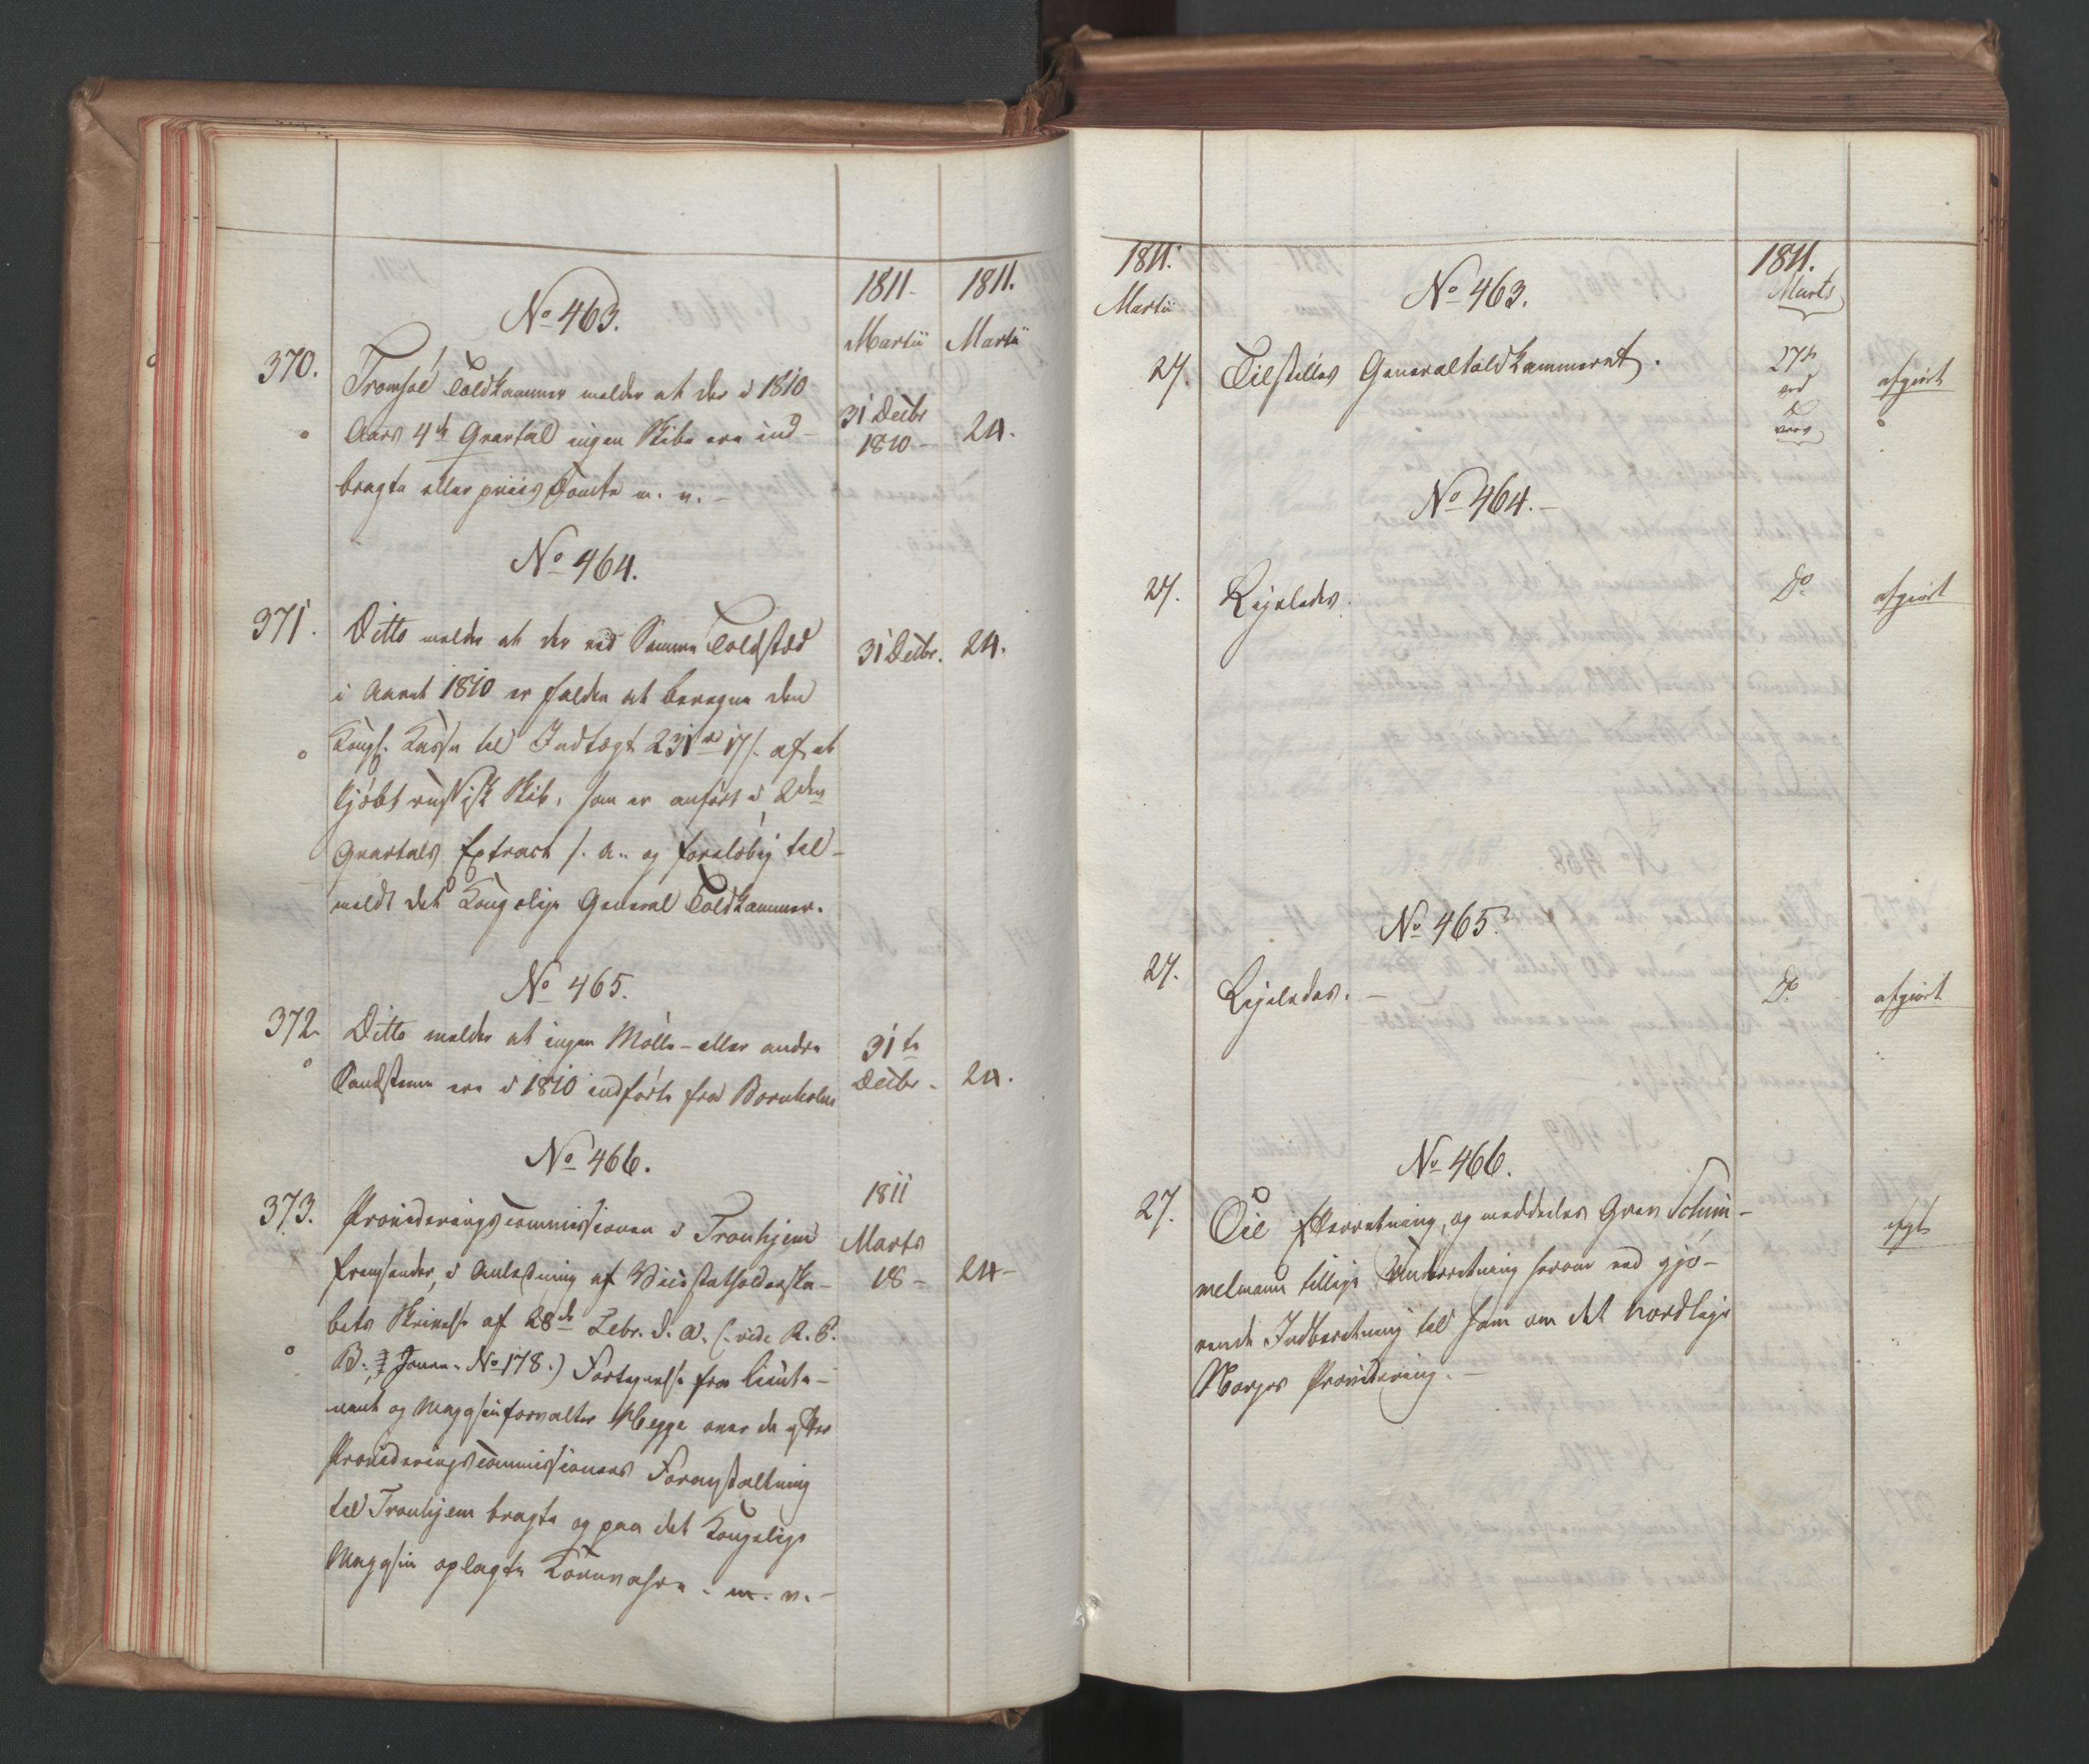 1811. 1811.
Martii Martii
No 463.
370. Tromsøe Toldkammer melder at der i 1810
Aars 4de Qvartal ingen Skibe ere ind- 31 Decbr 1810 - 24.
bragte eller priisdømte m. v. -
No 464.
371. Ditto melder at der ved samme Toldsted 31 Decbr. 24.
i Aaret 1810 er falden at beregne den
Kongl. Kasse til Indtægt 231 rd 17 s. af et
kjøbt russisk Skib, som er anført i 2den
Qvartals Extract s. A. og foreløbig til-
meldt det Kongelige General Toldkammer.
No 465.
372. Ditto melder at ingen Mølle- eller andre 31te
Sandstene ere i 1810 indførte fra Bornholm Decbr. 24.
No 466.
1811
373. Provideringscommissionen i Tronhjem Marts
fremsender, i Anledning af Viicestatholderska- 18 - 24 -
bets Skrivelse af 28de Febr. d. A. (vide R. P.
B. Journ. No 178.) Fortegnelse fra Lieute-
nant og Magasinforvalter Hegge over de efter
Provideringscommissionens Foranstaltning
til Tronhjem bragte og paa det Kongelige
Magasin oplagte Kornvahre. m. v. -
1811. 1811.
Martii Marts
No 463.
27. Tilstilles Generaltoldkammeret. 27de afgiort
ved
No 464. -
27. Ligeledes. Do afgiort
No 465.
27. Ligeledes. - Do afgiort
No 466.
27. Til Efterretning, og meddeeles Grev Schim- afgt
melmann tillige Underretning herom ved gjø-
rende Indberetning til ham om det nordlige
Norges Providering. -